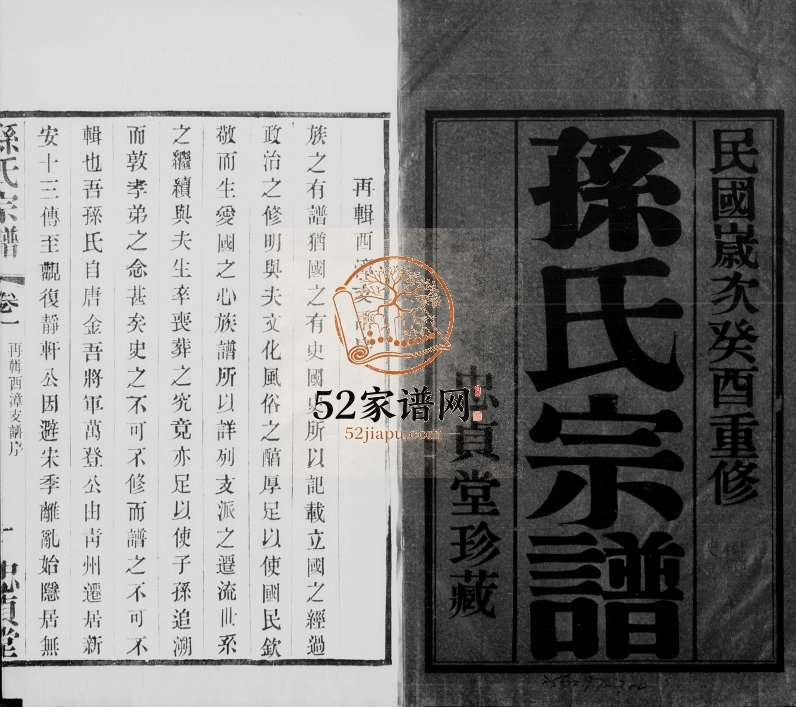 民國歲次癸酉重修
孫氏宗譜
忠貞堂珍藏
再輯西漳支譜序
族之有譜猶國之有史國史所以記載立國之經過
政治之修明與夫文化風俗之醇厚足以使國民欽
敬而生愛國之心族譜所以詳列支派之遷流世系
之繼續與夫生卒喪葬之究竟亦足以使子孫追溯
而敦孝弟之念甚矣史之不可不修而譜之不可不
輯也吾孫氏自唐金吾將軍萬登公由青州遷居新
安十三傳至觀復靜軒公因避宋季離亂始隱居無
孫氏宗譜
卷一
再輯西漳支譜序
一
忠貞堂
52家谱网
52jiapu.com